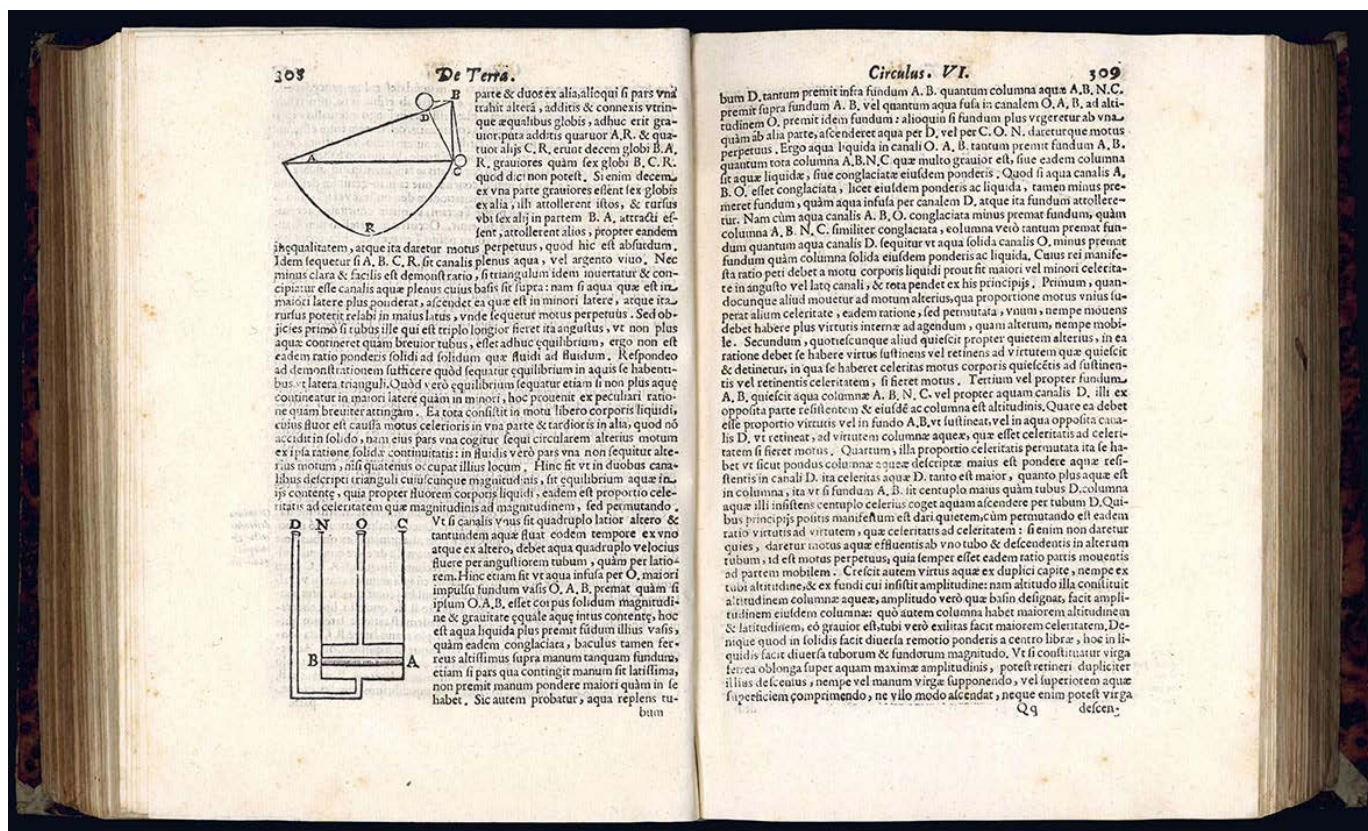 308 De Terra.
B
D
A
C
R
parte & duos ex alia, alioqui si pars vna
trahit alterã, additis & connexis vtrin-
que æqualibus globis, adhuc erit gra-
uior. puta additis quatuor A.R. & qua-
tuor alijs C.R. erunt decem globi B.A.
R. grauiores quàm sex globi B.C.R.
quod dici non potest. Si enim decem
ex vna parte grauiores essent sex globis
ex alia, illi attollerent istos, & rursus
vbi sex alij in partem B. A. attracti es-
sent, attollerent alios, propter eandem
inequalitatem, atque ita daretur motus perpetuus, quod hic est absurdum.
Idem sequetur si A. B. C. R. sit canalis plenus aqua, vel argento viuo. Nec
minus clara & facilis est demonstratio, si triangulum idem inuertatur & con-
cipiatur esse canalis aquæ plenus cuius basis sit supra: nam si aqua quæ est in
maiori latere plus ponderat, ascendet ea quæ est in minori latere, atque ita
rursus poterit relabi in maius latus, vnde sequetur motus perpetuus. Sed ob-
jicies primò si tubus ille qui est triplo longior fieret ita angustus, vt non plus
aquæ contineret quàm breuior tubus, esset adhuc equilibrium, ergo non est
eadem ratio ponderis solidi ad solidum quæ fluidi ad fluidum. Respondeo
ad demonstrationem sufficere quòd sequatur equilibrium in aquis se habenti-
bus vt latera trianguli. Quòd verò equilibrium sequatur etiam si non plus aquę
contineatur in maiori latere quàm in minori, hoc prouenit ex peculiari ratio-
ne quam breuiter attingam. Ea tota consistit in motu libero corporis liquidi,
cuius fluor est caussa motus celerioris in vna parte & tardioris in alia, quod nõ
accidit in solido, nam eius pars vna cogitur sequi circularem alterius motum
ex ipsa ratione solidæ continuitatis: in fluidis verò pars vna non sequitur alte-
rius motum, nisi quatenus occupat illius locum. Hinc fit vt in duobus cana-
libus descripti trianguli cuiuscunque magnitudinis, sit equilibrium aquæ in
ijs contentę, quia propter fluorem corporis liquidi, eadem est proportio cele-
ritatis ad celeritatem quæ magnitudinis ad magnitudinem, sed permutando.
D N O C
B A
Vt si canalis vnus sit quadruplo latior altero &
tantundem aquæ fluat eodem tempore ex vno
atque ex altero, debet aqua quadruplo velocius
fluere per angustiorem tubum, quàm per latio-
rem. Hinc etiam fit vt aqua infusa per O. maiori
impulsu fundum vasis O. A. B. premat quàm si
ipsum O.A.B. esset corpus solidum magnitudi-
ne & grauitate ęquale aquę intus contentę, hoc
est aqua liquida plus premit fũdum illius vasis,
quàm eadem conglaciata, baculus tamen fer-
reus altissimus supra manum tanquam fundum,
etiam si pars qua contingit manum sit latissima,
non premit manum pondere maiori quàm in se
habet. Sic autem probatur, aqua replens tu-
bum
Circulus. VI. 309
bum D. tantum premit infra fundum A. B. quantum columna aquæ A.B,N.C.
premit supra fundum A. B. vel quantum aqua fusa in canalem O. A, B. ad alti-
tudinem O. premit idem fundum: alioquin si fundum plus vrgeretur ab vna
quàm ab alia parte, ascenderet aqua per D. vel per C. O. N. dareturque motus
perpetuus. Ergo aqua liquida in canali O. A. B. tantum premit fundum A. B.
quantum tota columna A.B.N.C quæ multo grauior est, siue eadem columna
sit aquæ liquidæ, siue conglaciatæ eiusdem ponderis. Quod si aqua canalis A.
B. O. esset conglaciata, licet eiusdem ponderis ac liquida, tamen minus pre-
meret fundum, quàm aqua infusa per canalem D. atque ita fundum attollere-
tur. Nam cùm aqua canalis A. B. O. conglaciata minus premat fundum, quàm
columna A. B. N. C. similiter conglaciata, columna verò tantum premat fun-
dum quantum aqua canalis D. sequitur vt aqua solida canalis O. minus premat
fundum quàm columna solida eiusdem ponderis ac liquida. Cuius rei manife-
sta ratio peti debet a motu corporis liquidi prout fit maiori vel minori celerita-
te in angusto vel lato canali, & tota pendet ex his principijs. Primum, quan-
docunque aliud mouetur ad motum alterius, qua proportione motus vnius su-
perat alium celeritate, eadem ratione, sed permutata, vnum, nempe mouens
debet habere plus virtutis internæ ad agendum, quam alterum, nempe mobi-
le. Secundum, quotiescunque aliud quiescit propter quietem alterius, in ea
ratione debet se habere virtus sustinens vel retinens ad virtutem quæ quiescit
& detinetur, in qua se haberet celeritas motus corporis quiescẽtis ad sustinen-
tis vel retinentis celeritatem, si fieret motus. Tertium vel propter fundum
A. B. quiescit aqua columnæ A. B. N. C. vel propter aquam canalis D. illi ex
opposita parte resistentem & eiusdẽ ac columna est altitudinis. Quare ea debet
esse proportio virtutis vel in fundo A.B. vt sustineat, vel in aqua opposita cana-
lis D. vt retineat, ad virtutem columnæ aqueæ, quæ esset celeritatis ad celeri-
tatem si fieret motus. Quartum, illa proportio celeritatis permutata ita se ha-
bet vt sicut pondus columnæ aqueæ descriptæ maius est pondere aquæ resi-
stentis in canali D. ita celeritas aquæ D. tanto est maior, quanto plus aquæ est
in columna, ita vt si fundum A. B. sit centuplo maius quàm tubus D. columna
aquæ illi insistens centuplo celerius coget aquam ascendere per tubum D. Qui-
bus principijs positis manifestum est dari quietem, cùm permutando est eadem
ratio virtutis ad virtutem, quæ celeritatis ad celeritatem: si enim non daretur
quies, daretur motus aquæ effluentis ab vno tubo & descendentis in alterum
tubum, id est motus perpetuus, quia semper esset eadem ratio partis mouentis
ad partem mobilem. Crescit autem virtus aquæ ex duplici capite, nempe ex
tubi altitudine, & ex fundi cui insistit amplitudine: nam altitudo illa constituit
altitudinem columnæ aqueæ, amplitudo verò quæ basin designat, facit ampli-
tudinem eiusdem columnæ: quò autem columna habet maiorem altitudinem
& latitudinem, eò grauior est, tubi verò exilitas facit maiorem celeritatem. De-
nique quod in solidis facit diuersa remotio ponderis a centro libræ, hoc in li-
quidis facit diuersa tuborum & fundorum magnitudo. Vt si constituatur virga
ferrea oblonga super aquam maximæ amplitudinis, potest retineri dupliciter
illius descensus, nempe vel manum virgæ supponendo, vel superiorem aquæ
superficiem comprimendo, ne vllo modo ascendat, neque enim potest virga
Qq descen-